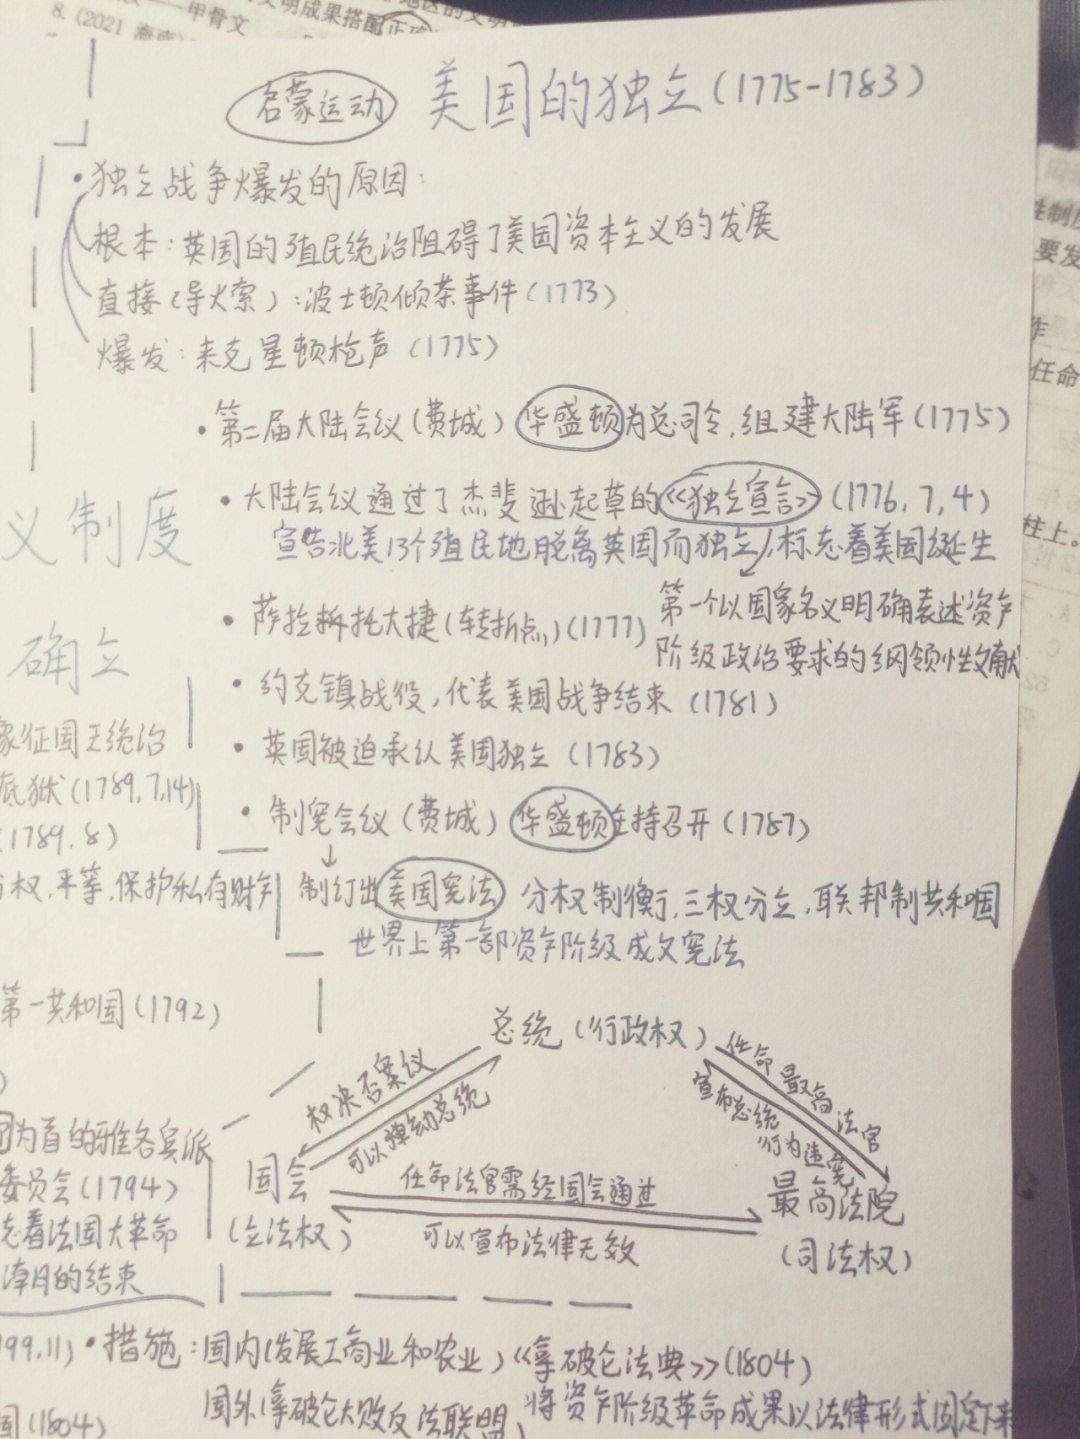 甲骨文
文明成果搭配正确
8.(2021 海南)
启蒙运动 美国的独立(1775-1783)
•独立战争爆发的原因:
根本:英国的殖民统治阻碍了美国资本主义的发展
直接(导火索):波士顿倾茶事件(1773)
爆发:来克星顿枪声(1775)
•第二届大陆会议(费城)华盛顿为总司令,组建大陆军(1775)
•大陆会议通过了杰斐逊起草的《独立宣言》(1776,7,4)
宣告北美13个殖民地脱离英国而独立,标志着美国诞生
第一个以国家名义明确表述资产
阶级政治要求的纲领性文献
•萨拉托托大捷(转折点)(1777)
•约克镇战役,代表美国战争结束(1781)
•英国被迫承认美国独立(1783)
•制宪会议(费城)华盛顿主持召开(1787)
↓
制订出美国宪法 分权制衡,三权分立,联邦制共和国
世界上第一部资产阶级成文宪法
总统(行政权)
权决否案议
可以弹劾总统
任命最高法官
宣布总统
行为违宪
国会
(立法权)
任命法官需经国会通过
可以宣布法律无效
最高法院
(司法权)
义制度
确立
象征国王统治
底狱(1789,7,14)
(1789,8)
权,平等,保护私有财产
第一共和国(1792)
为首的雅各宾派
委员会(1794)
志着法国大革命
潮的结束
99,11)•措施:国内(发展工商业和农业)《拿破仑法典》(1804)
国外(拿破仑大败反法联盟) 将资产阶级革命成果以法律形式固定下来
国(1804)
性制度
要发
作
任命
柱上。